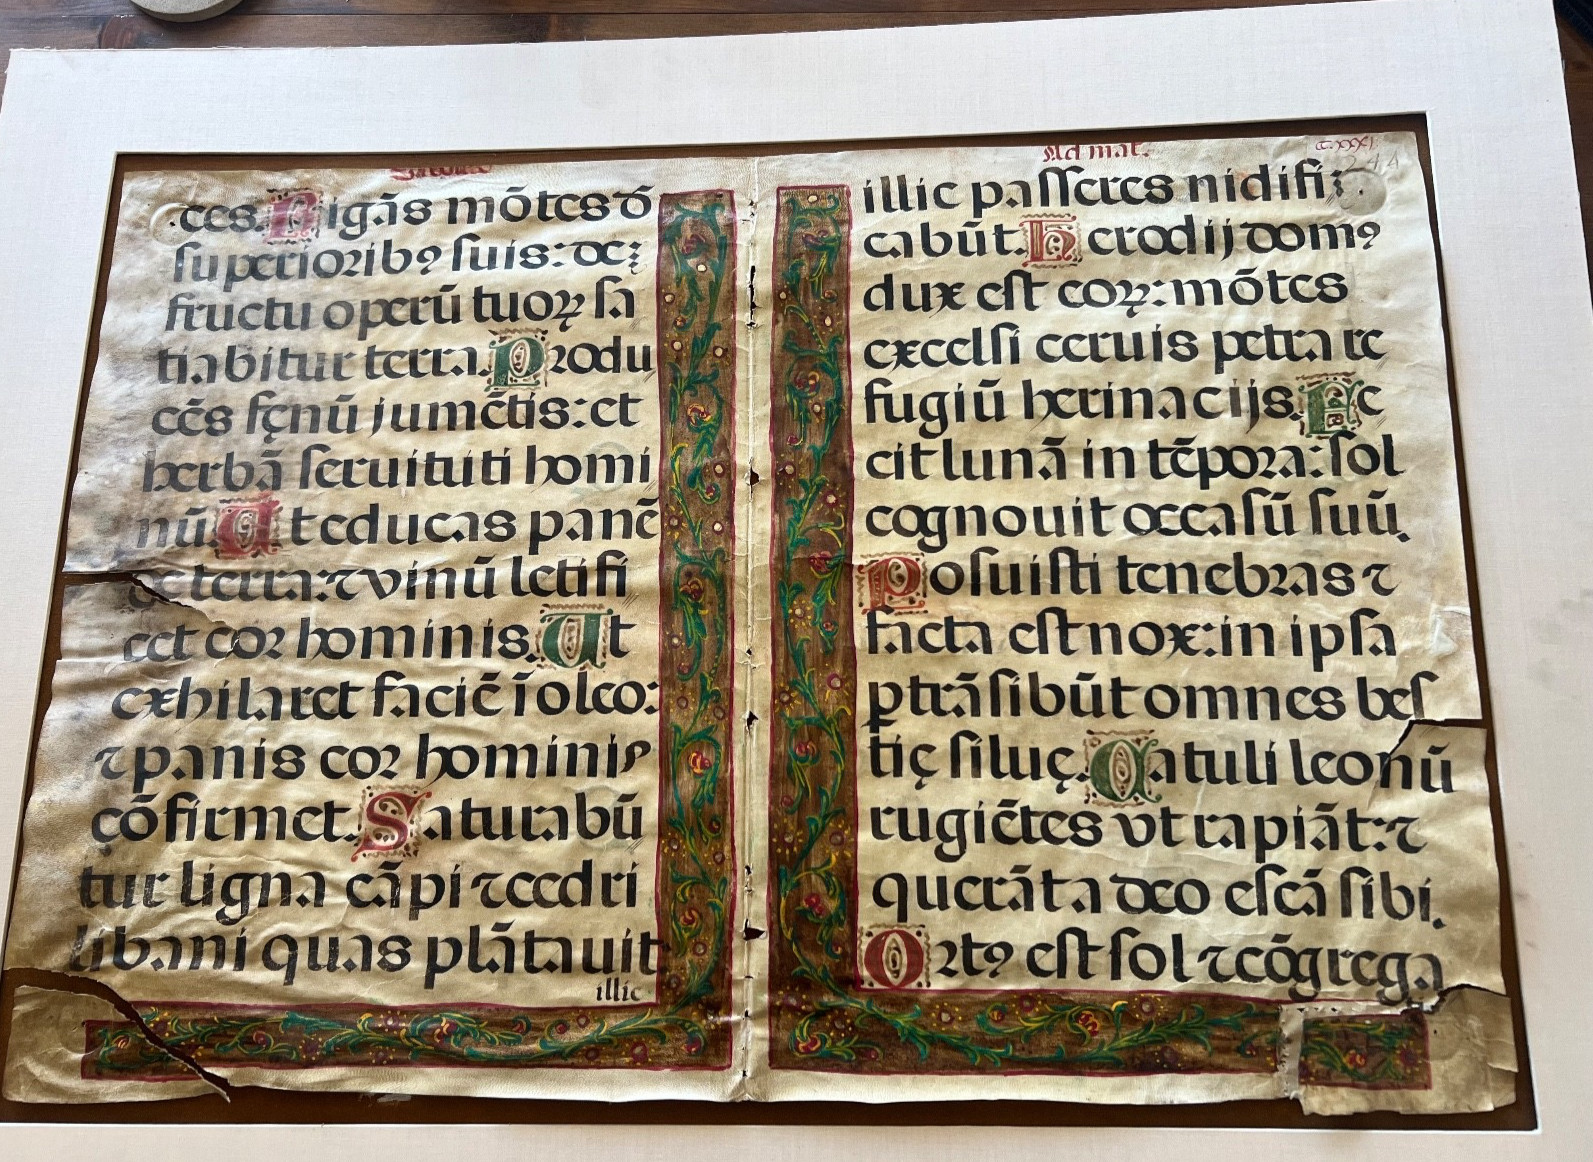 ces. Rigãs mõtes d̄
superioribꝰ suis: de
fructu operũ tuoꝝ sa
tiabitur terra. Produ
cẽs fęnũ jumẽtis: et
herbã seruituti homi
nũ. Ut educas panẽ
de terra: ⁊ vinũ letifi
cet cor hominis. Ut
exhilaret faciẽ ĩ oleo:
⁊ panis cor hominis
cõfirmet. Saturabũ
tur ligna cãpi ⁊ cedri
libani quas plãtauit:
illic
Ad mat.
244
illic passeres nidifi
cabũt. Herodij domꝰ
dux est eoꝝ: mõtes
excelsi ceruis petra re
fugiũ herinacijs. Fe
cit lunã in tẽpora: sol
cognouit occasũ suũ.
Posuisti tenebras ⁊
facta est nox: in ipsa
ꝑtrãsibũt omnes bes
tię siluę. Catuli leonũ
rugiẽtes vt rapiãt: ⁊
querãt a deo escã sibi.
Ortꝰ est sol ⁊ cõgrega